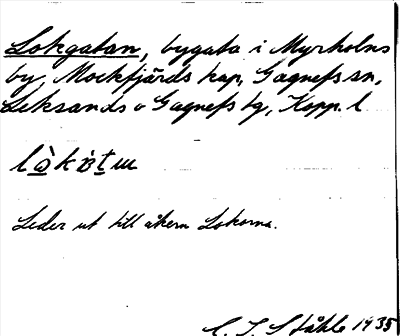 Lokgatan, bygata i Myrholns
by, Mockfjärds kap, Gagnefs sn,
Leksands o Gagnefs tg, Kopp. l
Leder ut till åkern Lokorna.
C. I. Ståhle 1935